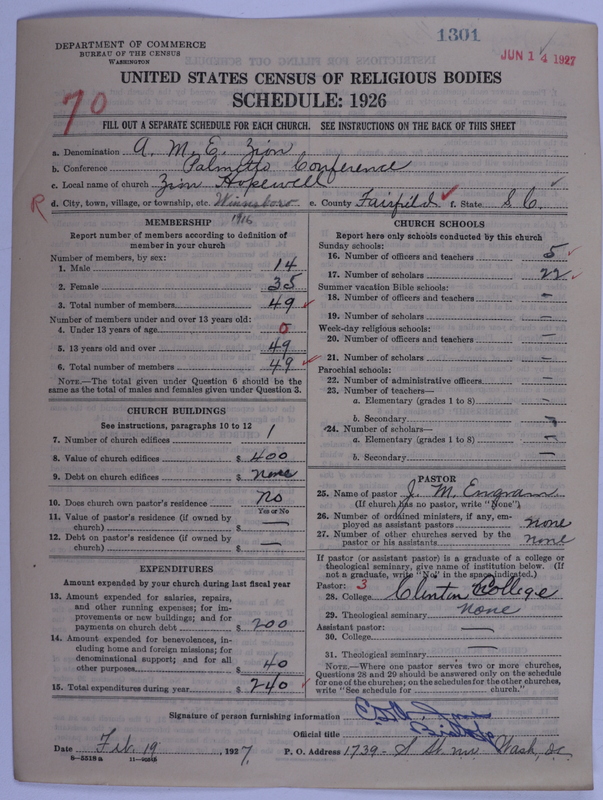 1301
JUN 14 1927
DEPARTMENT OF COMMERCE
BUREAU OF THE CENSUS
WASHINGTON
UNITED STATES CENSUS OF RELIGIOUS BODIES
SCHEDULE: 1926
70
FILL OUT A SEPARATE SCHEDULE FOR EACH CHURCH. SEE INSTRUCTIONS ON THE BACK OF THIS SHEET
a. Denomination A. M. E. Zion
b. Conference Palmetto Conference
c. Local name of church Zion Hopewell
R d. City, town, village, or township, etc. Winnsboro e. County Fairfield f. State S. C.
MEMBERSHIP 1916
Report number of members according to definition of member in your church
Number of members, by sex:
1. Male 14
2. Female 35
3. Total number of members 49
Number of members under and over 13 years old:
4. Under 13 years of age 0
5. 13 years old and over 49
6. Total number of members 49
NOTE.—The total given under Question 6 should be the same as the total of males and females given under Question 3.
CHURCH BUILDINGS
See instructions, paragraphs 10 to 12
7. Number of church edifices 1
8. Value of church edifices $ 400
9. Debt on church edifices $ none
10. Does church own pastor's residence? no
Yes or No
11. Value of pastor's residence (if owned by church) $ —
12. Debt on pastor's residence (if owned by church) $ —
EXPENDITURES
Amount expended by your church during last fiscal year
13. Amount expended for salaries, repairs, and other running expenses; for improvements or new buildings; and for payments on church debt $ 200
14. Amount expended for benevolences, including home and foreign missions; for denominational support; and for all other purposes $ 40
15. Total expenditures during year $ 240
CHURCH SCHOOLS
Report here only schools conducted by this church
Sunday schools:
16. Number of officers and teachers 5
17. Number of scholars 22
Summer vacation Bible schools:
18. Number of officers and teachers —
19. Number of scholars —
Week-day religious schools:
20. Number of officers and teachers —
21. Number of scholars —
Parochial schools:
22. Number of administrative officers —
23. Number of teachers—
a. Elementary (grades 1 to 8) —
b. Secondary —
24. Number of scholars—
a. Elementary (grades 1 to 8) —
b. Secondary —
PASTOR
25. Name of pastor J. M. Engram
(If church has no pastor, write "None")
26. Number of ordained ministers, if any, employed as assistant pastors none
27. Number of other churches served by the pastor or his assistants none
If pastor (or assistant pastor) is a graduate of a college or theological seminary, give name of institution below. (If not a graduate, write "No" in the space indicated.)
Pastor: 3
28. College Clinton College
29. Theological seminary none
Assistant pastor:
30. College —
31. Theological seminary —
NOTE.—Where one pastor serves two or more churches, Questions 28 and 29 should be answered only on the schedule for one of the churches; on the schedules for the other churches, write "See schedule for church."
Signature of person furnishing information
Official title
Date Feb. 19, 1927. P. O. Address 1739- S St. nw. Wash, D.C.
8-5518a